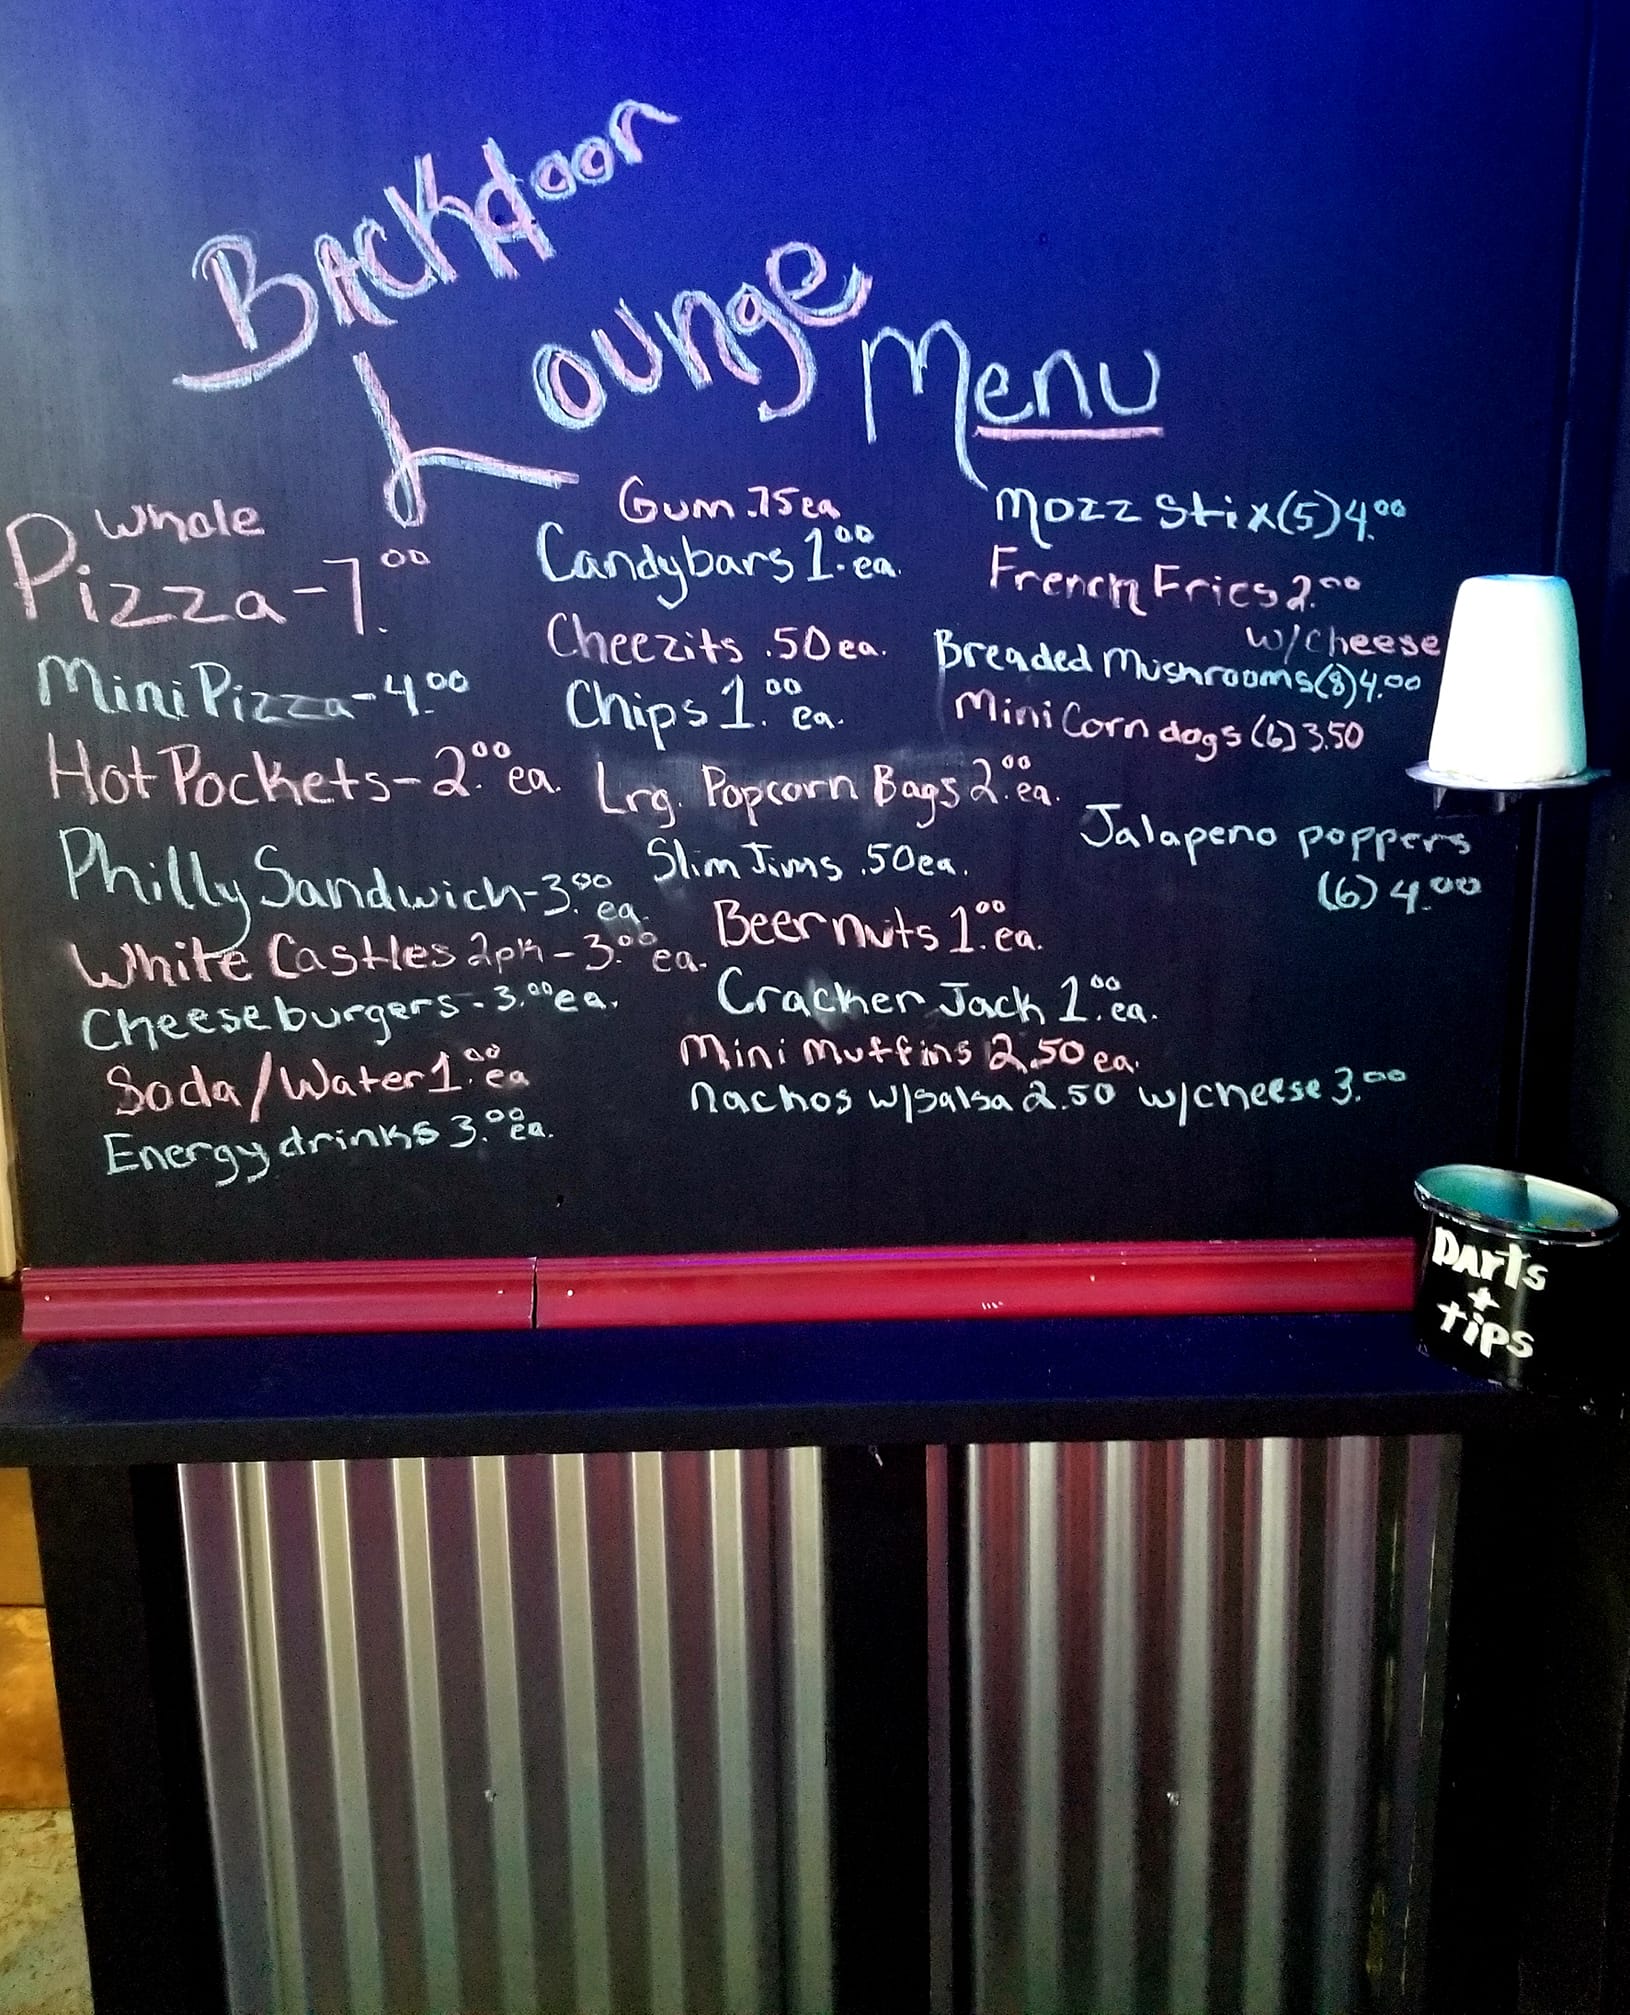 Backdoor
Lounge Menu
Whole
Pizza-7.00
Mini Pizza-4.00
Hot Pockets-2.00 ea.
Philly Sandwich-3.00 ea.
White Castles 2pk-3.00 ea.
Cheeseburgers-3.00 ea.
Soda/Water 1.00 ea
Energy drinks 3.00 ea.
Gum .75 ea
Candybars 1.00 ea.
Cheezits .50 ea.
Chips 1.00 ea.
Lrg. Popcorn Bags 2.00 ea.
Slim Jims .50 ea.
Beer nuts 1.00 ea.
Cracker Jack 1.00 ea.
Mini Muffins 2.50 ea.
Nachos w/salsa 2.50 w/cheese 3.00
Mozz Stix (5) 4.00
French Fries 2.00
w/cheese
Breaded Mushrooms (8) 4.00
Mini Corn dogs (6) 3.50
Jalapeno poppers
(6) 4.00
Darts
+
tips